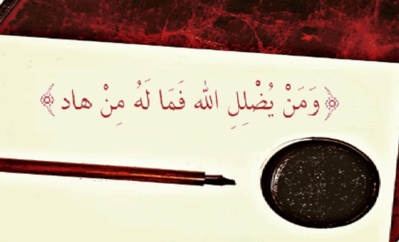 ﴿وَمَنْ يُضْلِلِ الله فَمَا لَهُ مِنْ هاد﴾